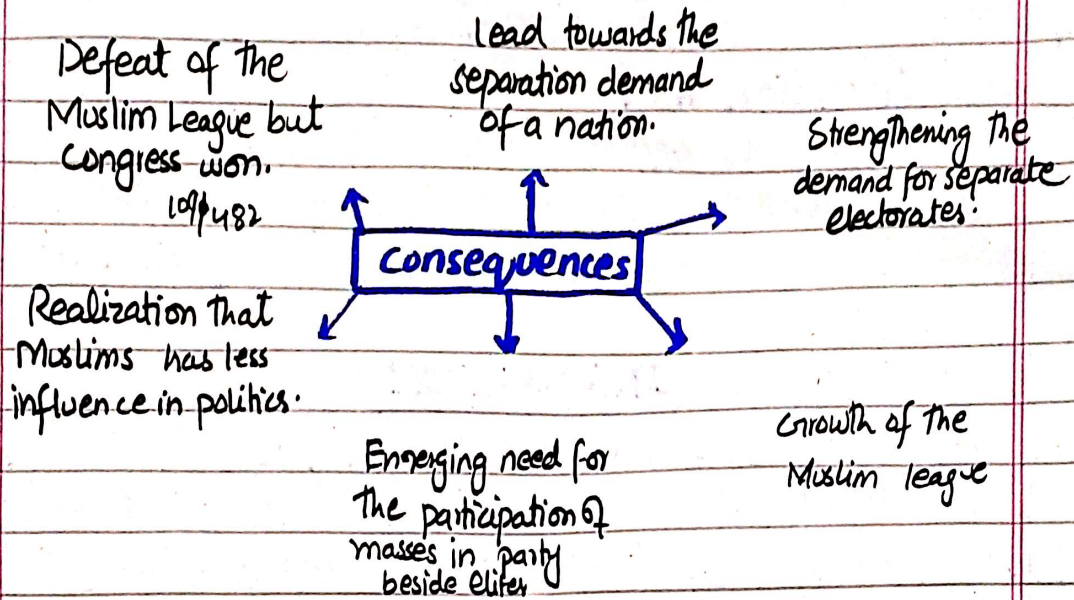 Defeat of the
Muslim League but
Congress won.
109/482
lead towards the
separation demand
of a nation.
Strengthening the
demand for separate
electorates.
Consequences
Realization that
Muslims has less
influence in politics.
Emerging need for
the participation of
masses in party
beside elites
Growth of the
Muslim league